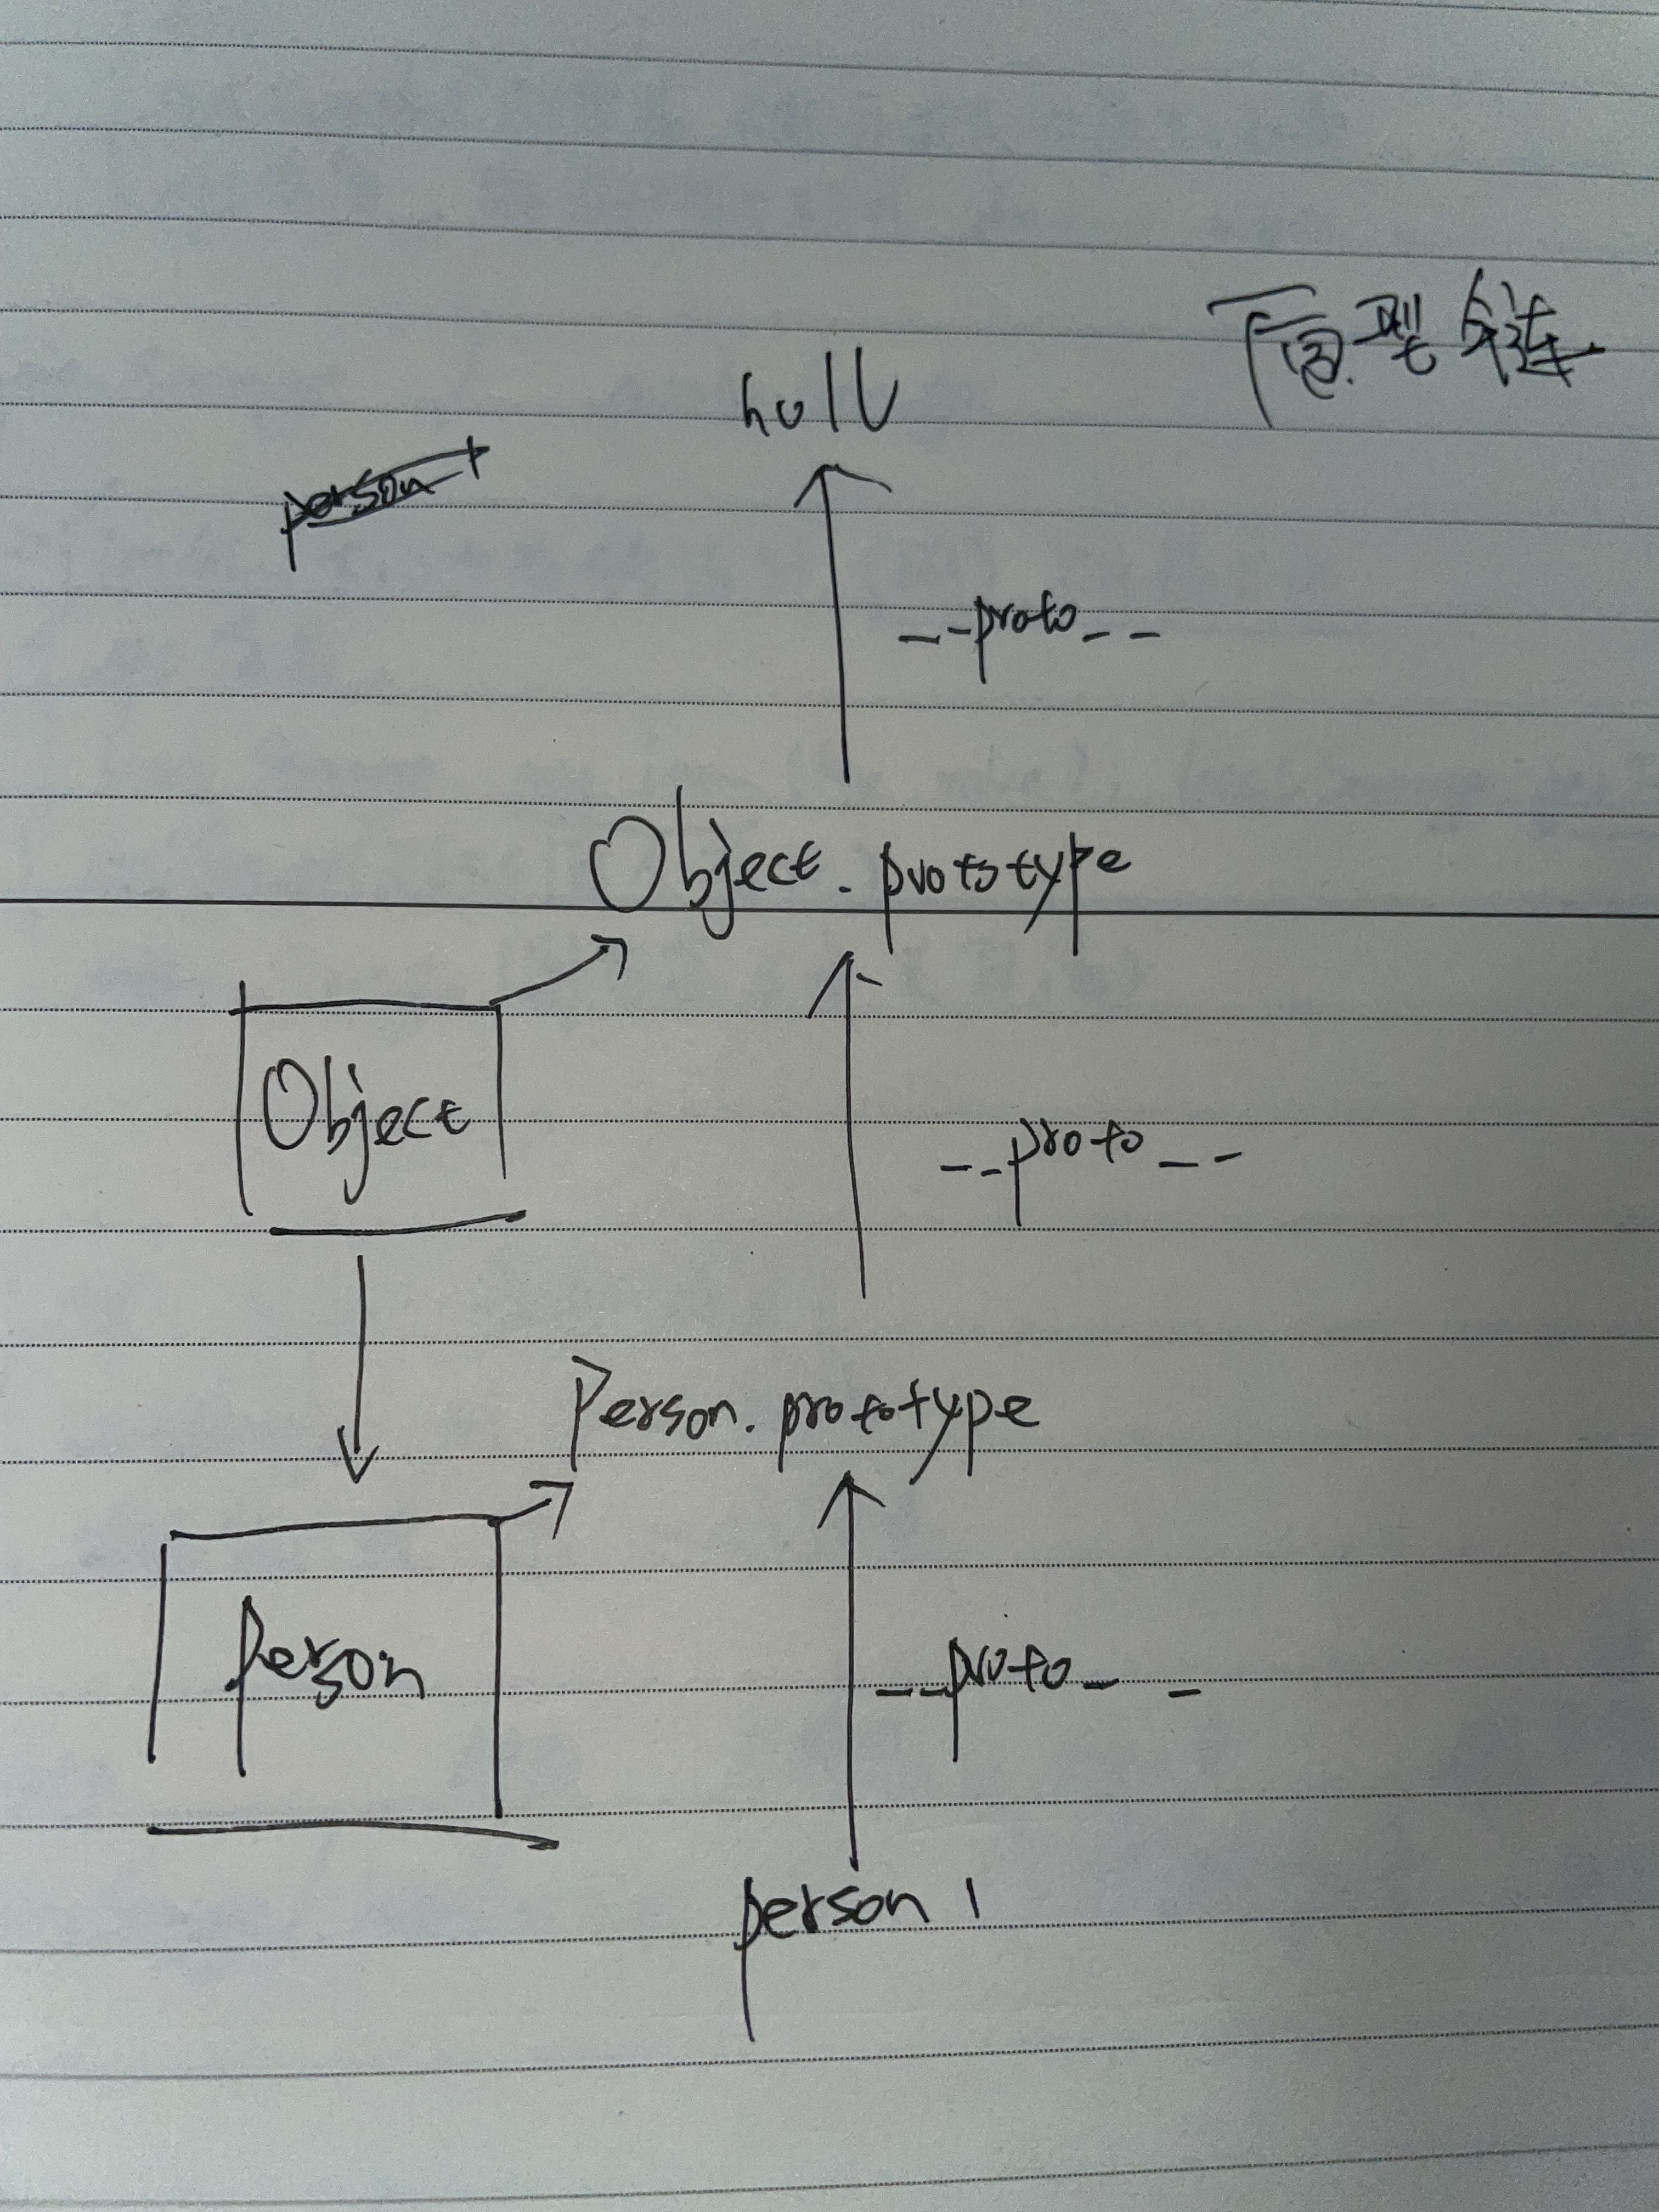 原型链
null
person 1
__proto__
Object.prototype
Object
__proto__
Person.prototype
person
__proto__
person 1